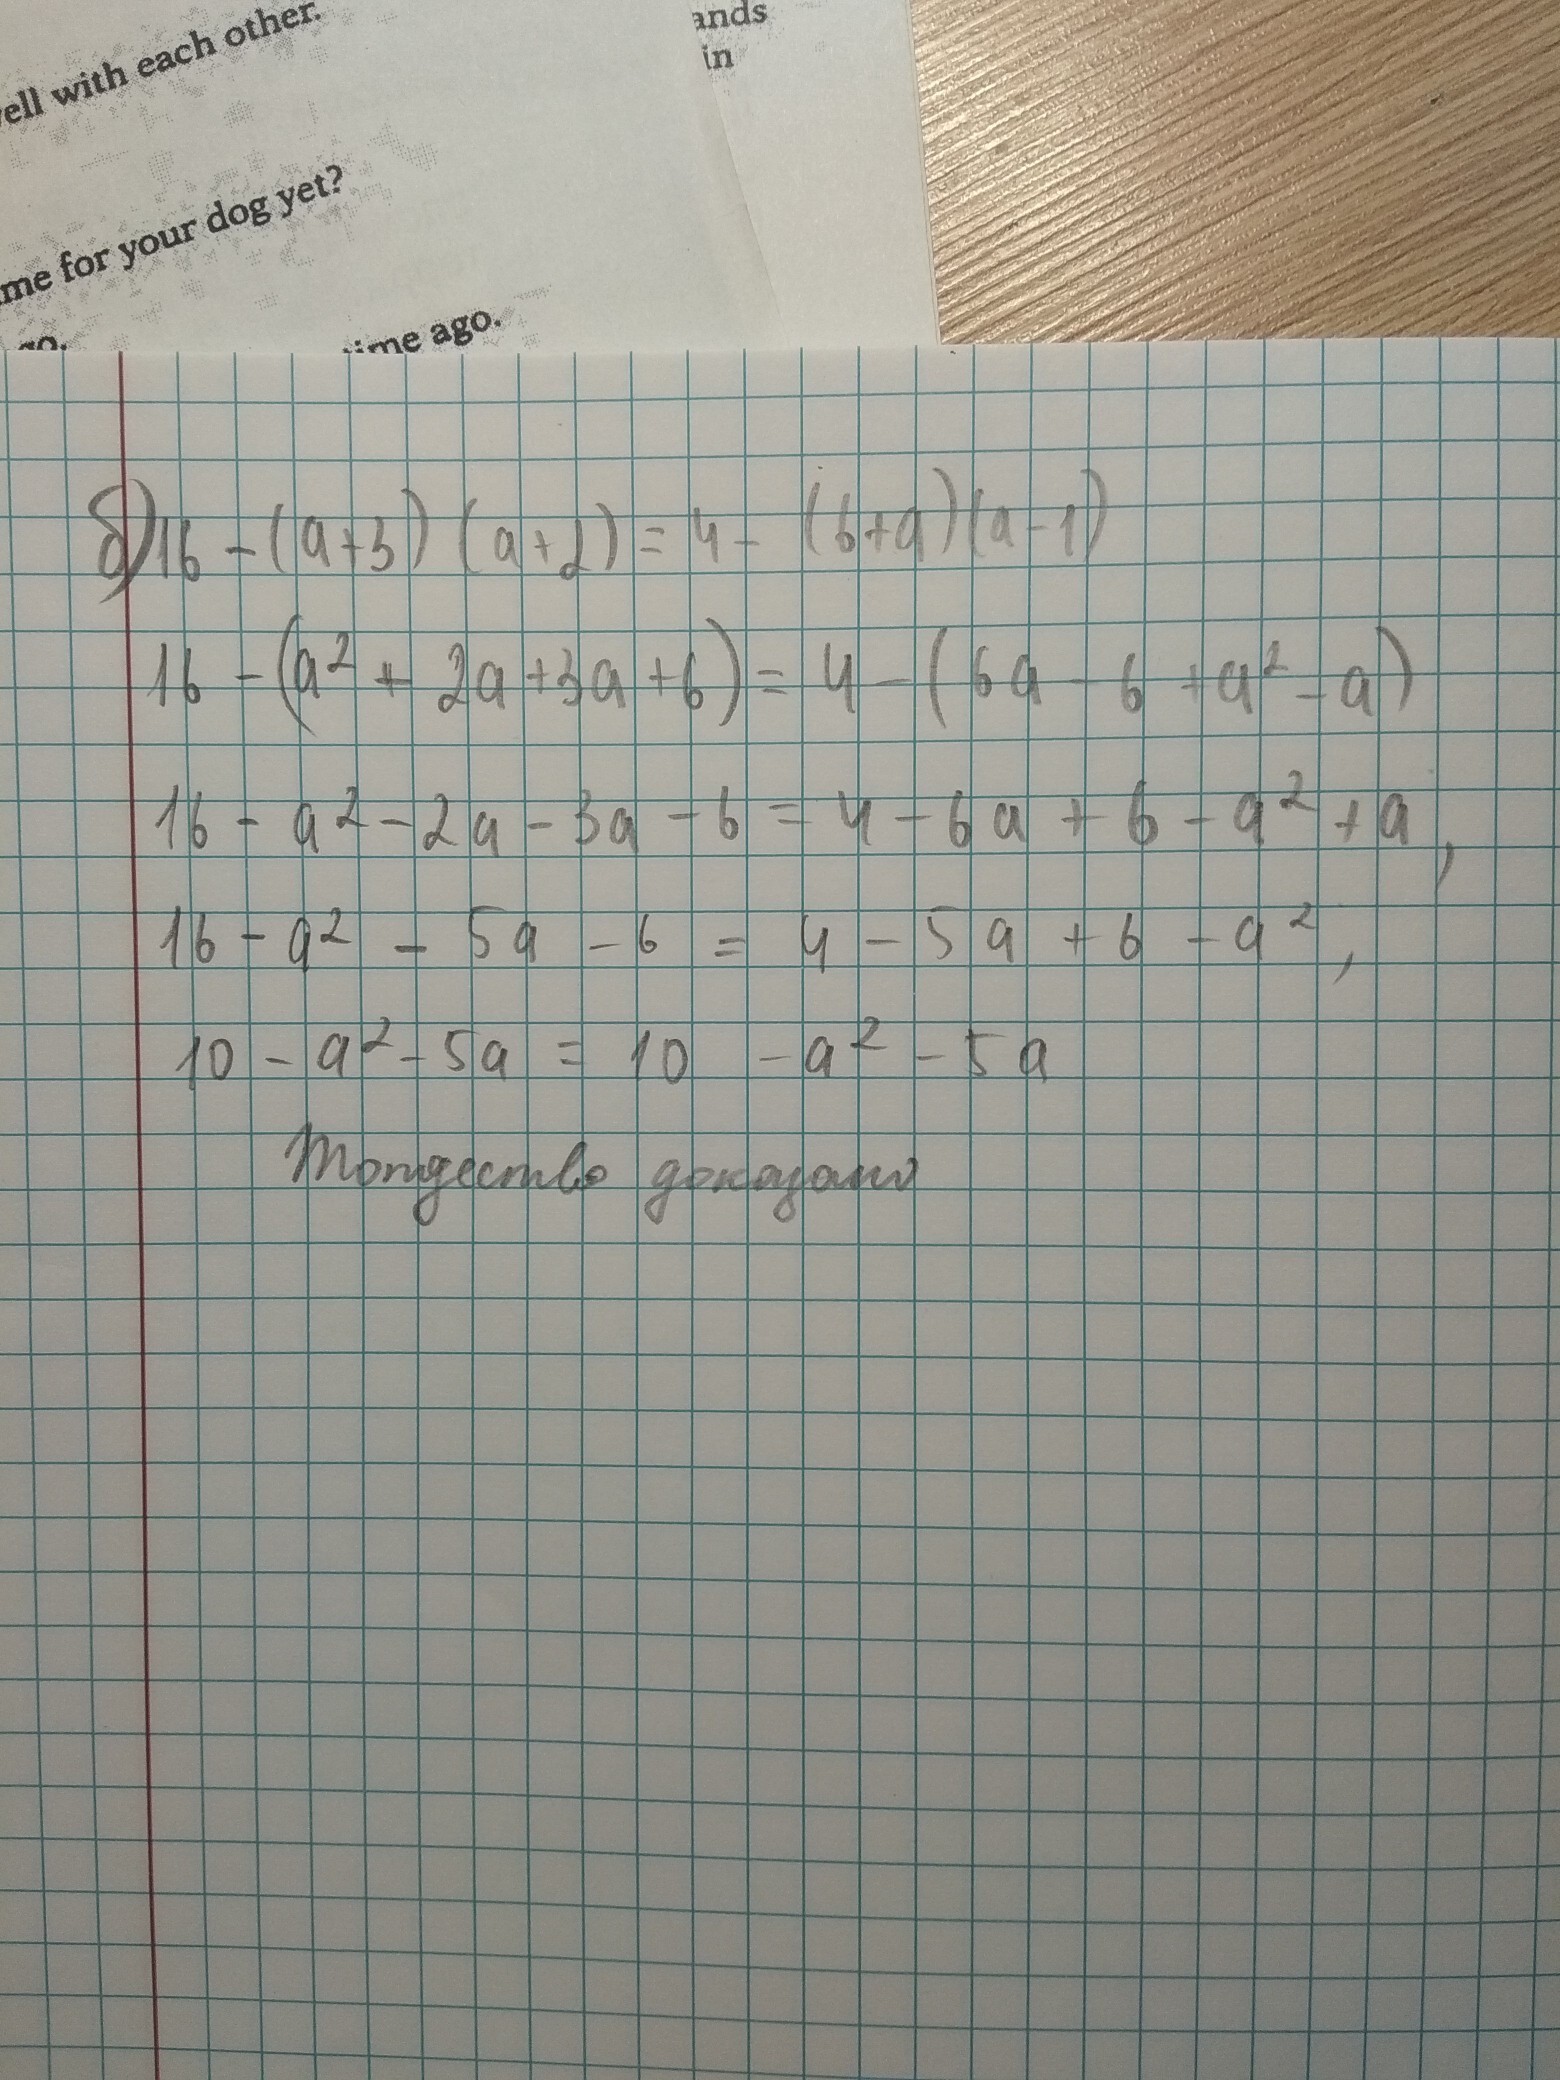 ell with each other.
ands
in
me for your dog yet?
go.
time ago.
б) 16 - (a+3) (a+2) = 4 - (6+a)(a-1)
16 - (a² + 2a + 3a + 6) = 4 - (6a - 6 + a² - a)
16 - a² - 2a - 3a - 6 = 4 - 6a + 6 - a² + a,
16 - a² - 5a - 6 = 4 - 5a + 6 - a²,
10 - a² - 5a = 10 - a² - 5a
Тождество доказано